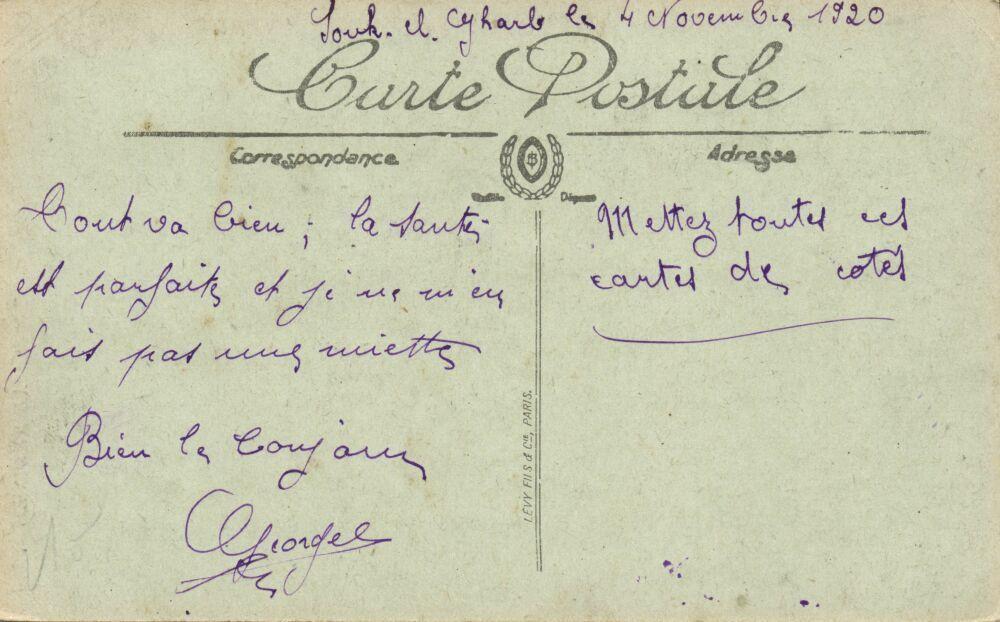 Souk. el. Gharb le 4 Novembre 1920
Carte Postale
Correspondance
Adresse
Tout va bien ; la santé
est parfaite et je ne m'en
fais pas une miette
Bien le bonjour
Georgel
Mettez toutes ces
cartes de cotés
LEVY FILS & Cie, PARIS.